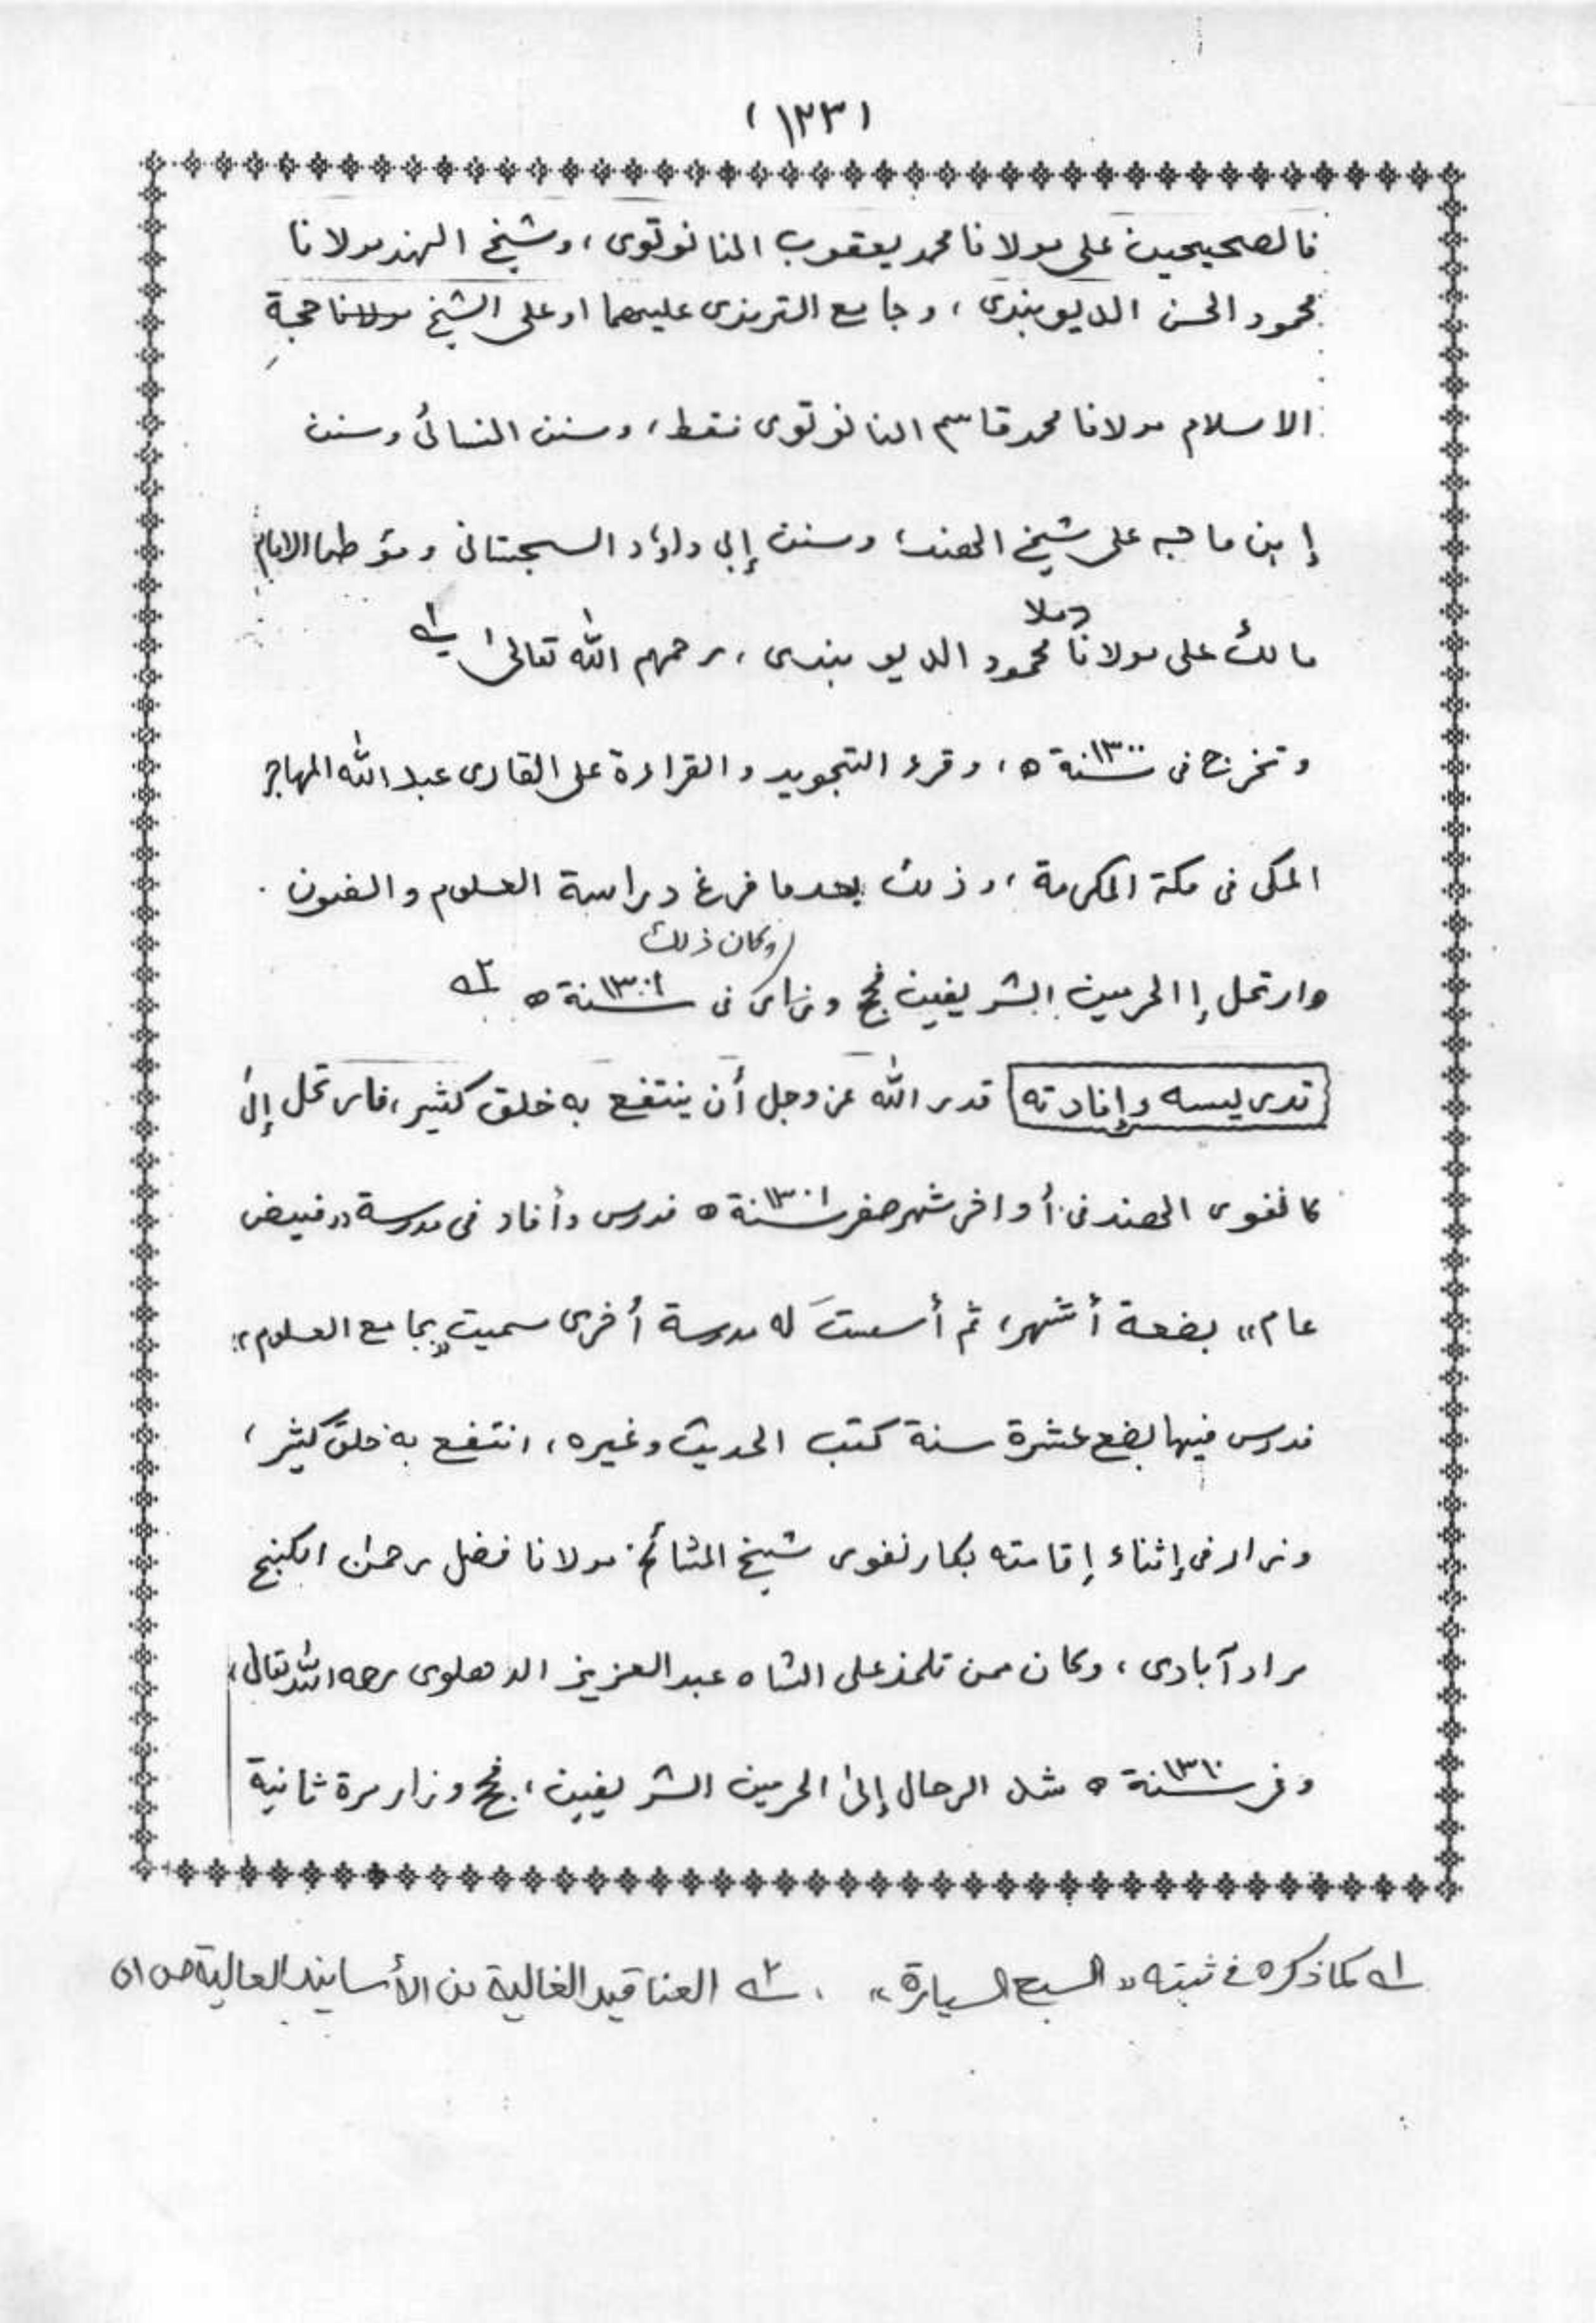 (١٢٣)
فالصحيحين على مولانا محمد يعقوب النانوتوى، وشيخ الهند مولانا
محمود الحسن الديوبندى، وجامع الترمذى عليهما او على الشيخ مولانا حجة
الاسلام مولانا محمد قاسم النانوتوى فقط، وسنن النسائى وسنن
إبن ماجه على شيخ الهند، وسنن إبى داؤد السجستانى ومؤطا الامام
مالك على مولانا ملا محمود الديوبندى، رحمهم الله تعالىٰ ؎۱
وتخرج فى سنة ١٣٠٠ ه، وقرء التجويد والقراءة على القارى عبد الله المهاجر
المكى فى مكة المكرمة، وذلك بعدما فرغ دراسة العلوم والفنون .
وارتحل إ الحرمين الشريفين فحج وزار وكان ذلك فى سنة ١٣٠١ ه ؎۲
تدريسه وإفادته قدر الله عز وجل أن ينتفع به خلق كثير، فارتحل إلىٰ
كانفور الهند فى أواخر شهر صفر سنة ١٣٠١ ه فدرس وأفاد فى مدرسة ,,فيض
عام،، بضعة أشهر، ثم أسست له مدرسة أخرى سميت ,,بجامع العلوم،،
فدرس فيها بضع عشرة سنة كتب الحديث وغيره، انتفع به خلق كثير،
وزار فى إثناء إقامته بكانفور شيخ المشائخ مولانا فضل رحمن الكنج
مراد آبادى، وكان ممن تلمذ على الشاه عبد العزيز الدهلوى رحمه الله تعالى،
وفى سنة ١٣١٠ ه شد الرحال إلىٰ الحرمين الشريفين، فحج وزار مرة ثانية
؎۱ كما ذكره فى ثبته ,,السبع السيارة،، . ؎۲ العناقيد الغالية من الأسانيد العالية ص ٥١